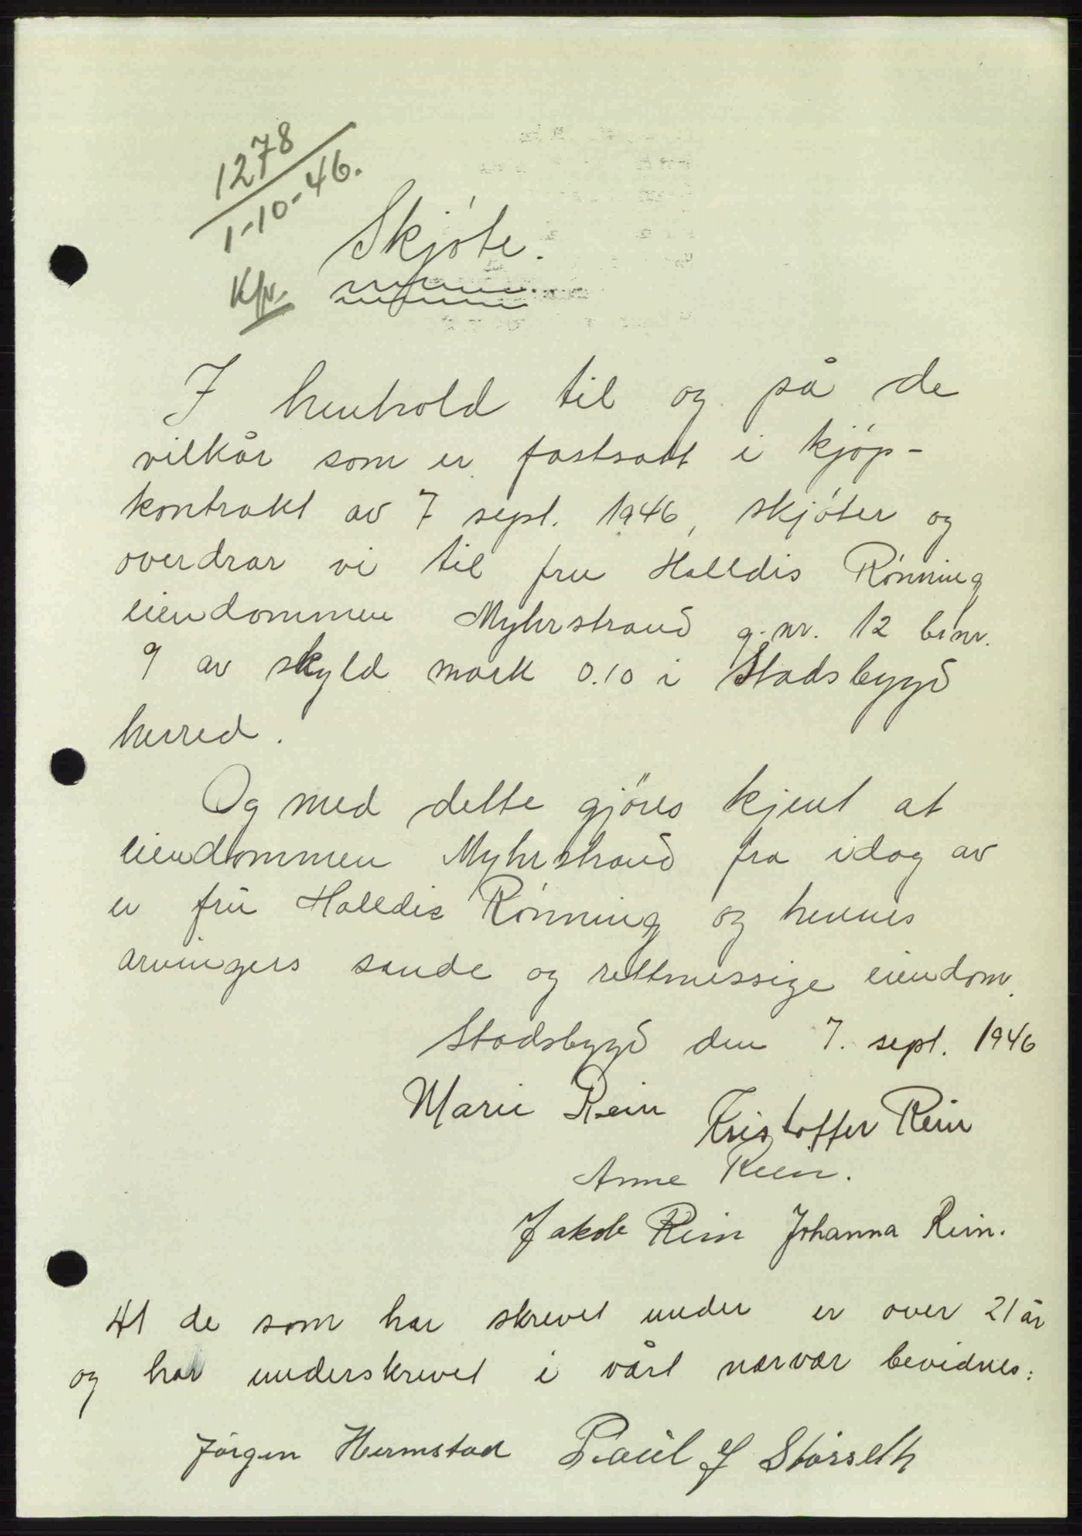 1278
1-10-46.
Kfr.
Skjøte.
I henhold til og på de
vilkår som er fastsatt i kjøp-
kontrakt av 7 sept. 1946, skjøter og
overdrar vi til fru Halldis Rønning
eiendommen Myhrstrand g.nr. 12 br.nr.
9 av skyld mark 0.10 i Stadsbygd
herred.
Og med dette gjöres kjent at
eiendommen Myhrstrand fra idag av
er frú Halldis Rønning og hennes
arvingers sande og rettmessige eiendom.
Stadsbygd den 7. sept. 1946
Marie Rein Kristoffer Rein
Anne Rein.
Jakob Rein Johanna Rein.
At de som har skrevet under er over 21 år
og har underskrevet i vårt nærvær bevidnes:
Jørgen Hermstad Paul J Størseth